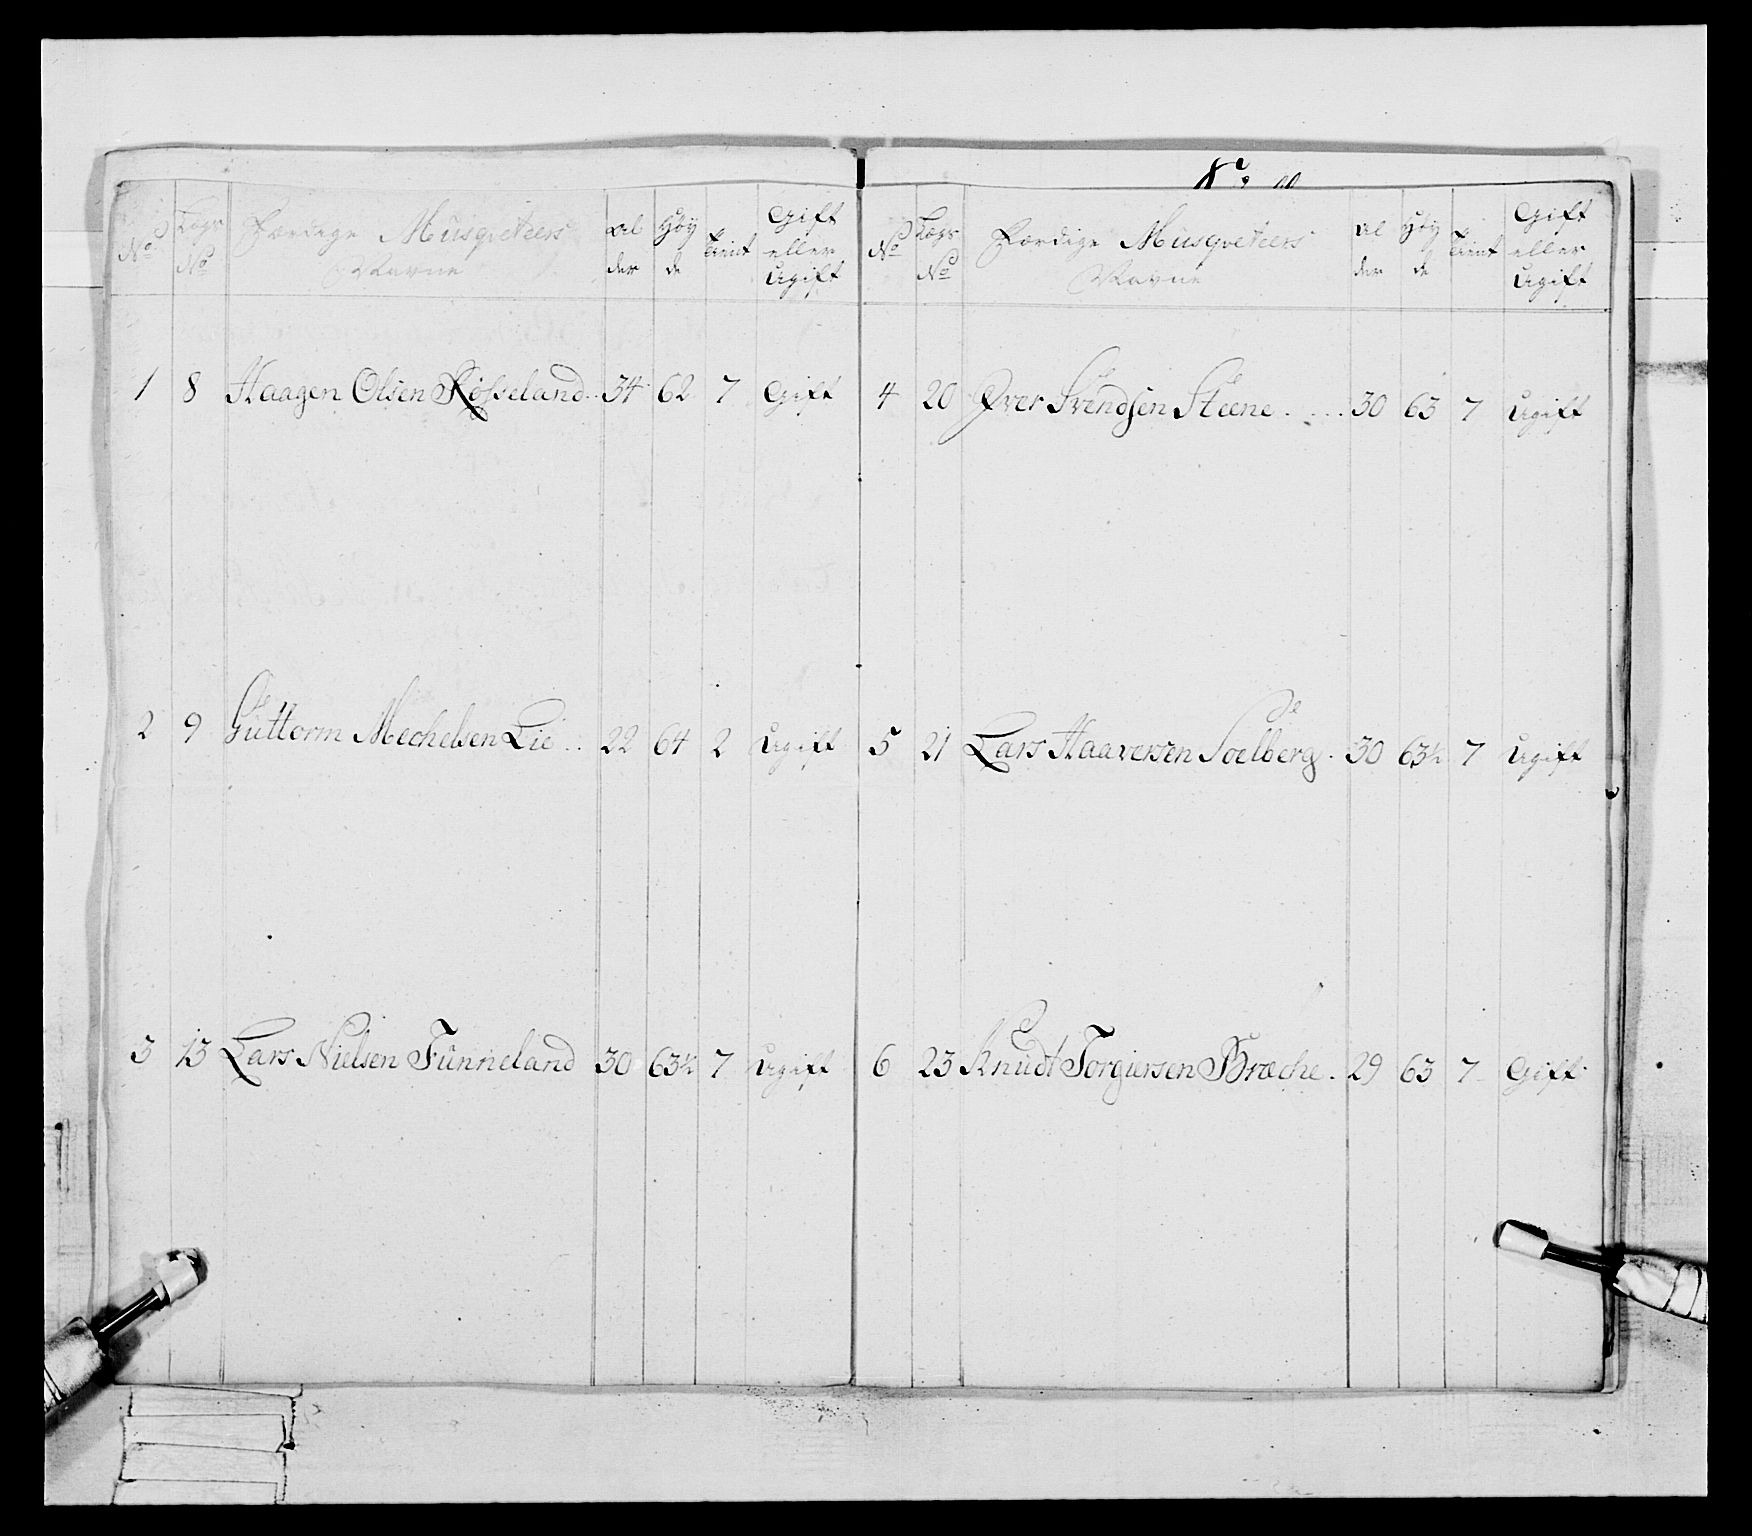 No | Lægs No | Færdige Musqveteers Navne | Alder | Høyde | Tient | Gift eller Ugift
1 | 8 | Haagen Olsen Røsseland | 34 | 62 | 7 | Gift
2 | 9 | Guttorm Mechelsen Lie | 22 | 64 | 2 | Ugift
3 | 13 | Lars Nielsen Funneland | 30 | 63½ | 7 | Ugift
No | Lægs No | Færdige Musqveteers Navne | Alder | Høyde | Tient | Gift eller Ugift
4 | 20 | Iver Svendsen Steene | 30 | 63 | 7 | Ugift
5 | 21 | Lars Haaversen Soelberg | 30 | 63½ | 7 | Ugift
6 | 23 | Knudt Torgiersen Bræche | 29 | 63 | 7 | Gift